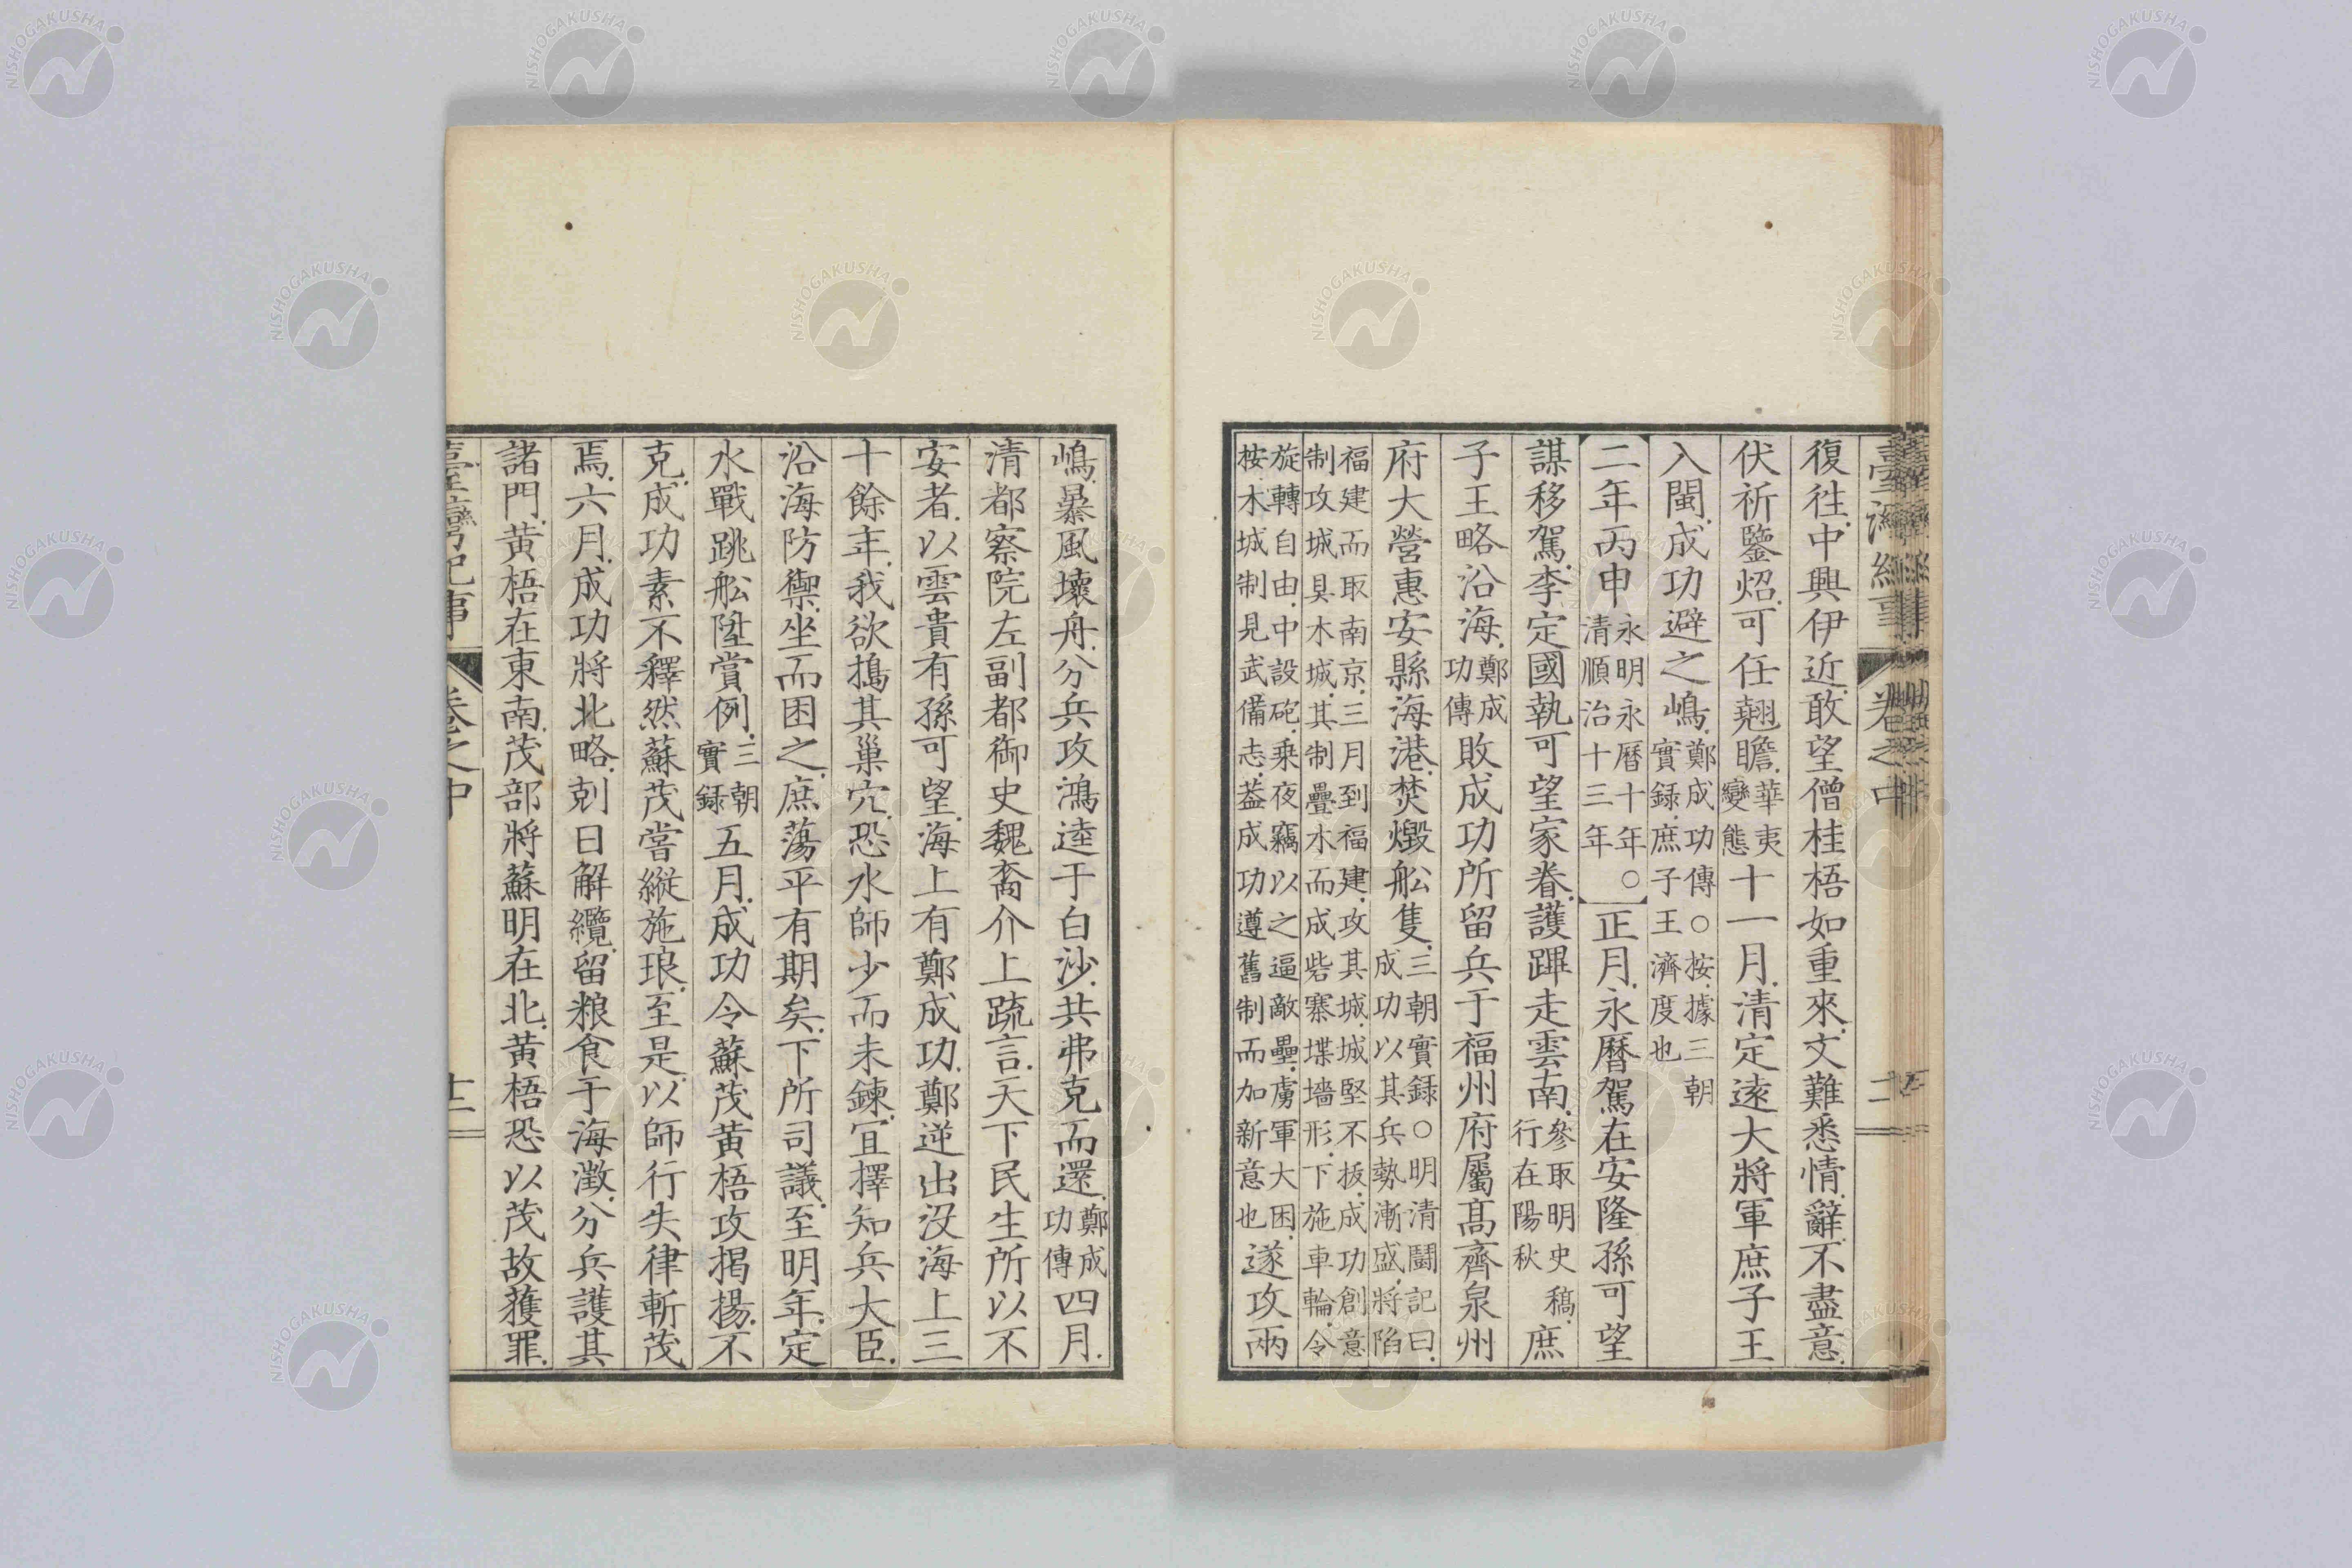 復徃中興伊近敢望僧桂梧如重來文難悉情辭不盡意
伏祈鑒炤可任翹瞻華夷變態十一月清定遠大將軍庶子王
入閩成功避之嶋鄭成功傳○按據三朝實録庶子王濟度也
二年丙申永明永曆十年○清順治十三年正月永曆駕在安隆孫可望
謀移駕李定國執可望家眷護蹕走雲南參取明史稿行在陽秋庶
子王略沿海鄭成功傳敗成功所留兵于福州府屬髙齊泉州
府大營惠安縣海港焚燬舩隻三朝實録○明清鬪記曰成功以其兵勢漸盛將陷
福建而取南京三月到福建攻其城城堅不拔成功創意制攻城具木城其制疊木而成砦寨堞墻形下施車輪令
旋轉自由中設砲乗夜竊以之逼敵壘虜軍大困按木城制見武備志葢成功遵舊制而加新意也遂攻兩
嶋暴風壞舟分兵攻鴻逵于白沙共弗克而還鄭成功傳四月
清都察院左副都御史魏裔介上疏言天下民生所以不
安者以雲貴有孫可望海上有鄭成功鄭逆出没海上三
十餘年我欲搗其巢穴恐水師少而未鍊宜擇知兵大臣
沿海防禦坐而困之庶蕩平有期矣下所司議至明年定
水戰跳舩陞賞例三朝實録五月成功令蘇茂黃梧攻揭揚不
克成功素不釋然蘇茂嘗縱施琅至是以師行失律斬茂
焉六月成功將北略剋日解纜留粮食于海澂分兵護其
諸門黃梧在東南茂部將蘇明在北黃梧恐以茂故獲罪
臺灣紀事
卷之中
十二
NISHOGAKUSHA